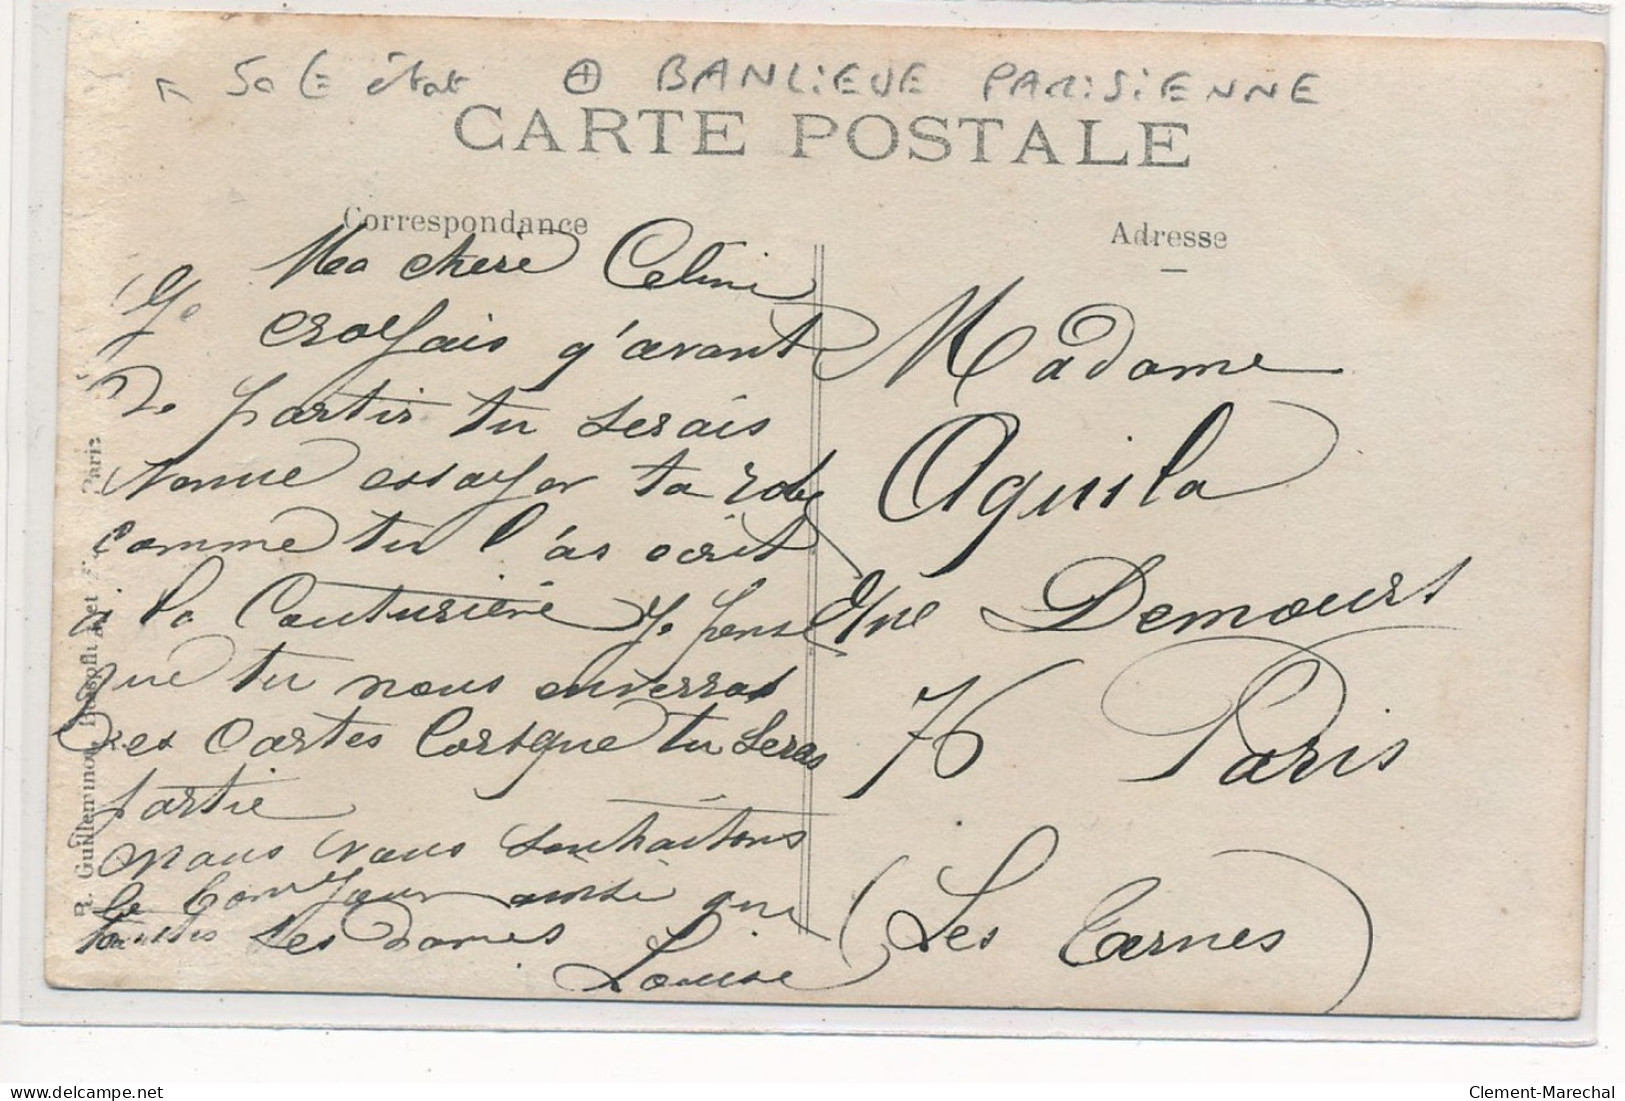 50 € état ⊕ BANLIEUE PARISIENNE
CARTE POSTALE
Correspondance
Adresse
Ma chere Celine
Je croyais q'avant
de partir tu serais
venue essayer ta robe
comme tu l'as ecrit
a la Couturière Je pense
que tu nous enverras
des cartes lorsque tu seras
partie
nous vous souhaitons
le bonjour ainsi que
toutes ses dames
Louise
Madame
Aquila
Rue Demours
76 Paris
(Les Ternes)
R. Guilleminot, Bœspflug et Cie Paris
Clement-Marechal